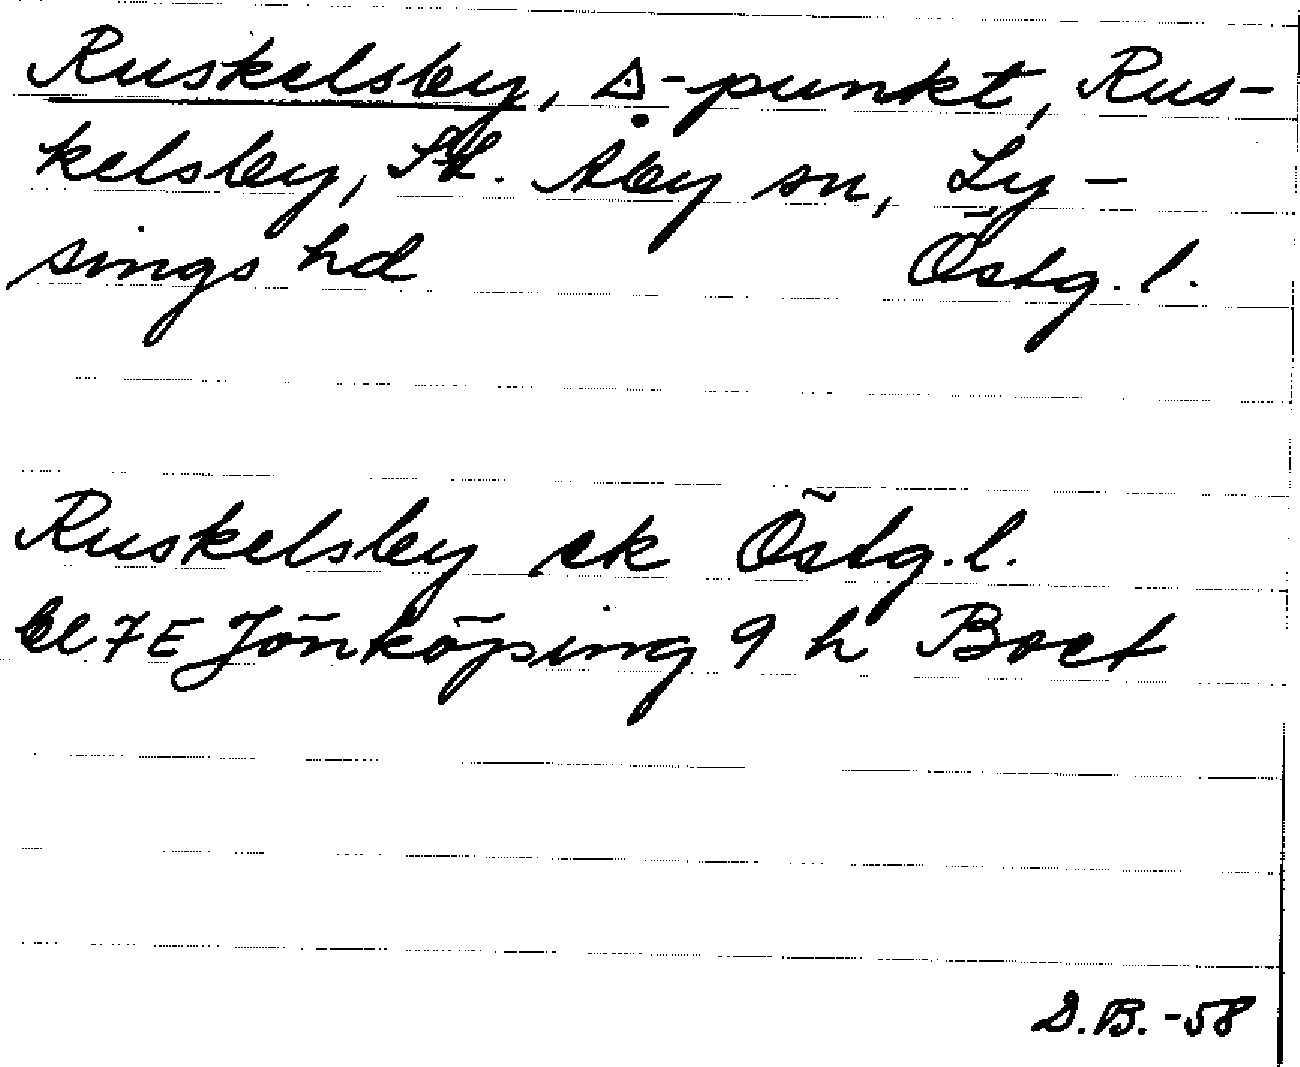 Ruskelsby, △-punkt, Rus-
kelsby, St. Åby sn, Ly-
sings hd Östg. l.
Ruskelsby ek Östg. l.
bl 7E Jönköping 9 h Boet
D.B. -58